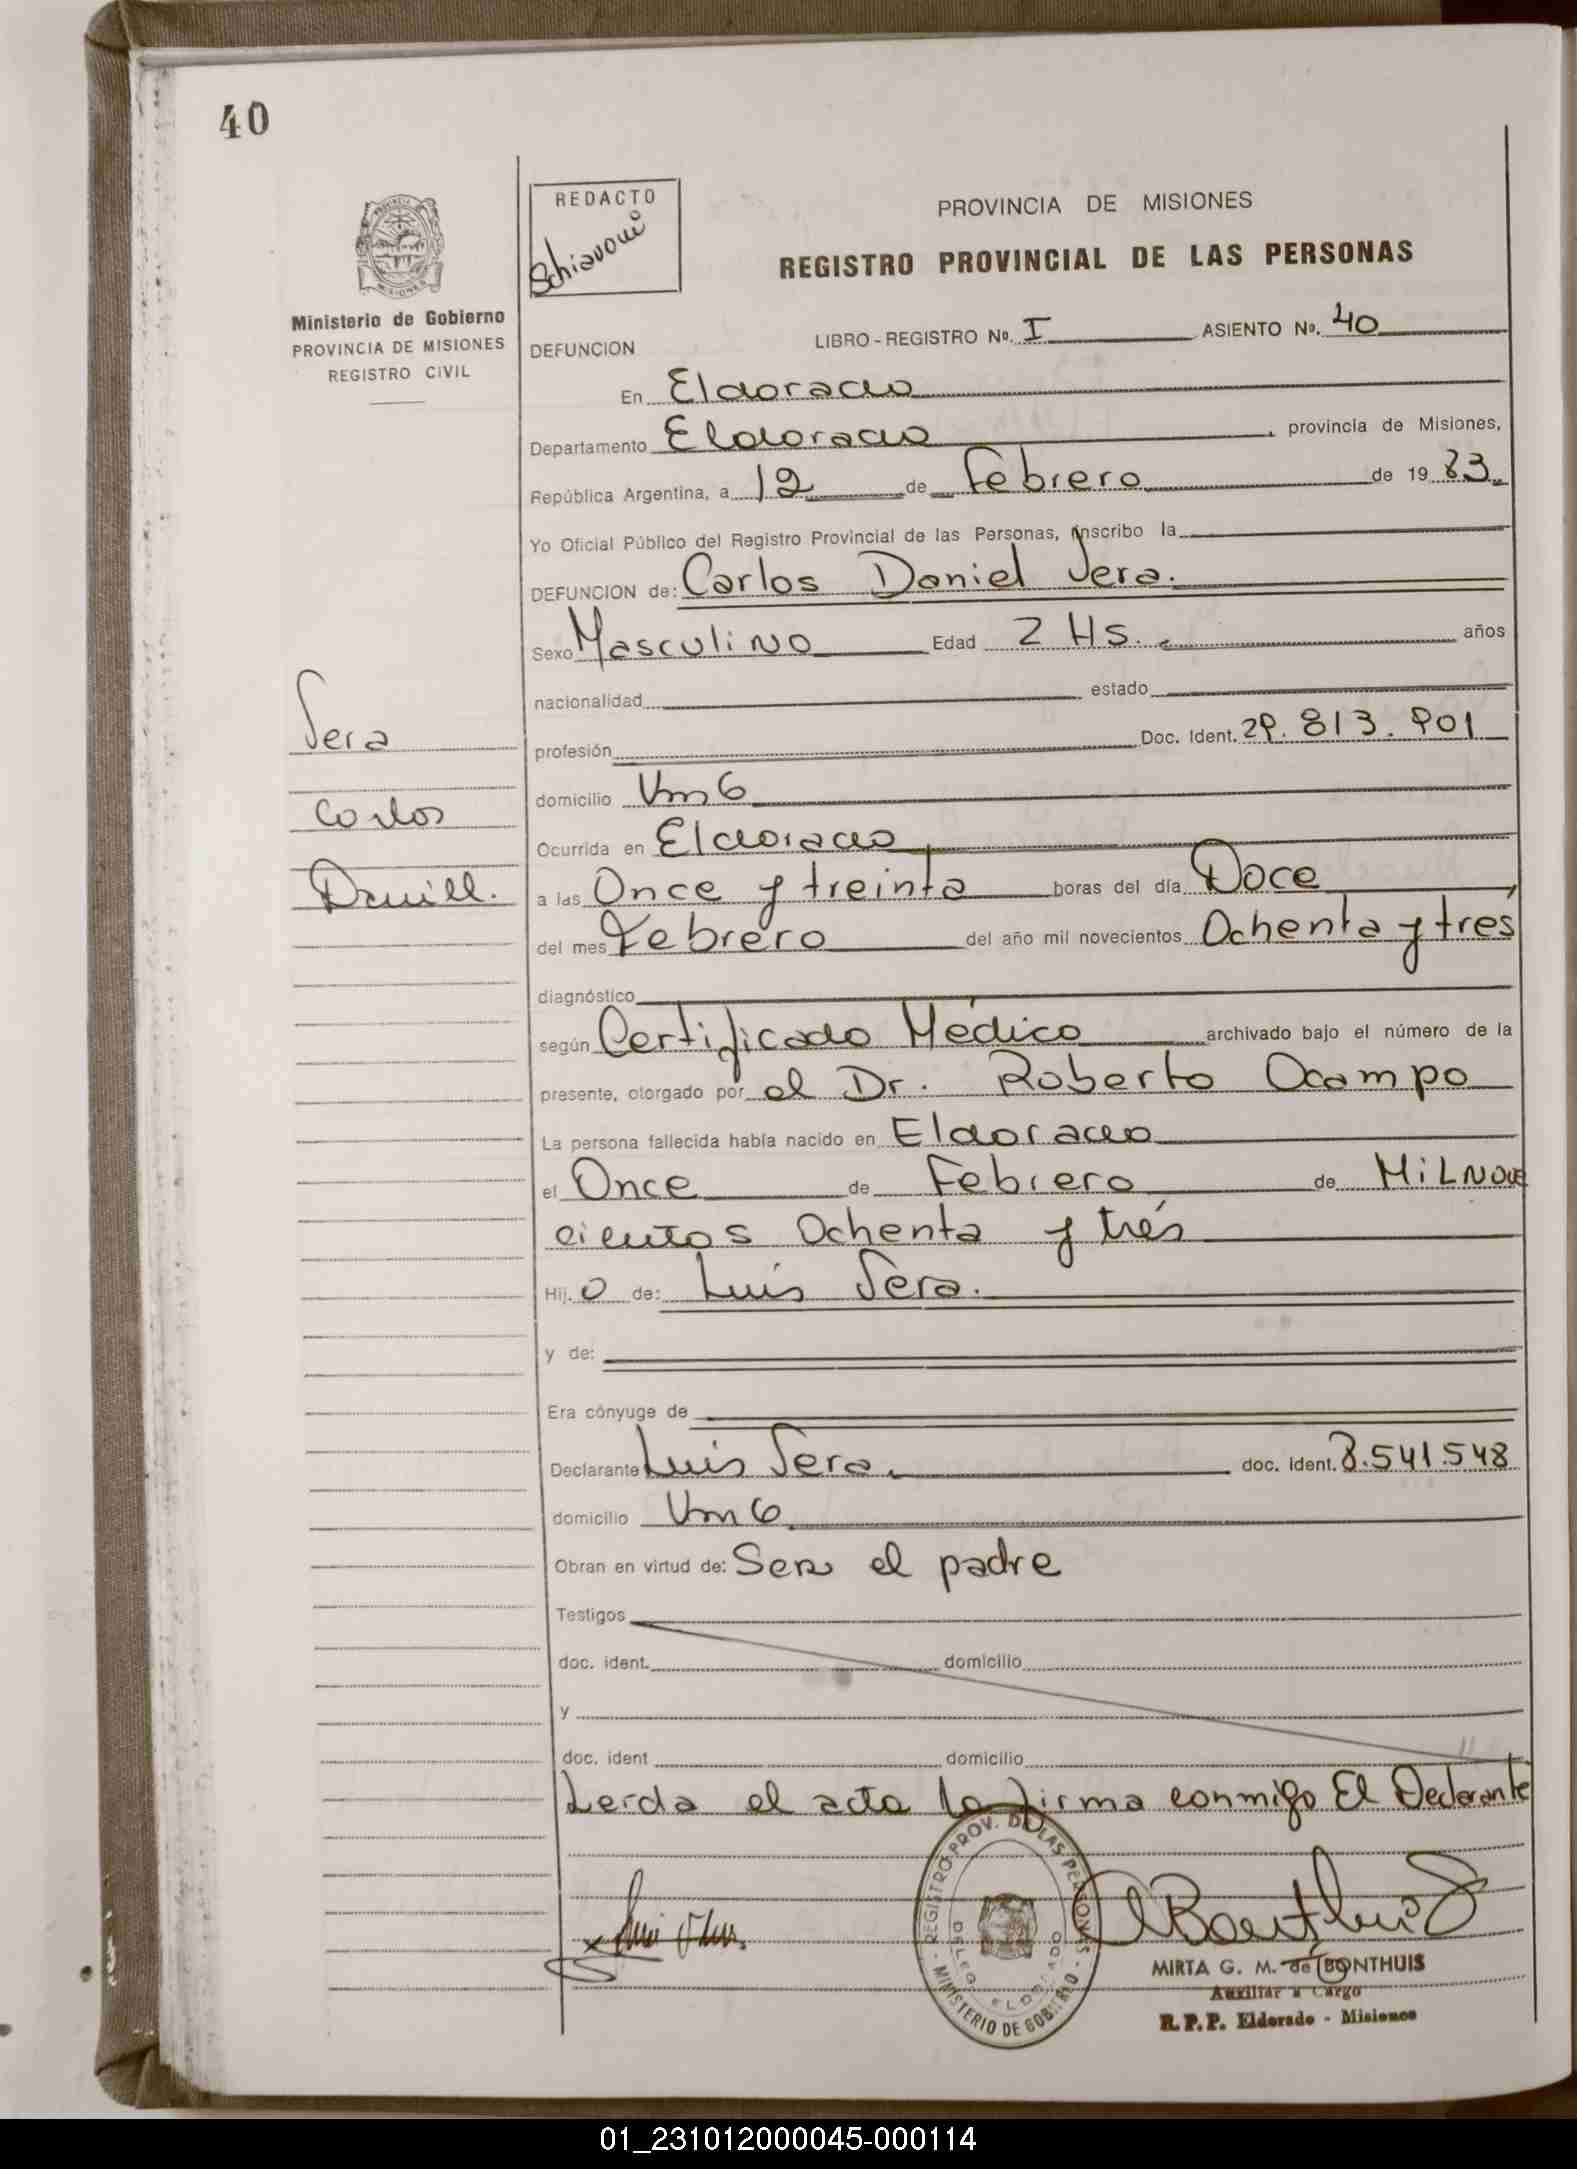 40
REDACTO
Schiavoni
PROVINCIA DE MISIONES
REGISTRO PROVINCIAL DE LAS PERSONAS
Ministerio de Gobierno
PROVINCIA DE MISIONES
REGISTRO CIVIL
LIBRO - REGISTRO Nº. I ASIENTO Nº. 40
DEFUNCION
En Eldorado
Departamento Eldorado, provincia de Misiones,
República Argentina, a 12 de Febrero de 19 83
Yo Oficial Público del Registro Provincial de las Personas, inscribo la
DEFUNCION de: Carlos Daniel Vera.
Sexo Masculino Edad 2 Hs. años
nacionalidad estado
Vera
Carlos
Daniel.
profesión Doc. Ident. 29.813.901
domicilio Km 6
Ocurrida en Eldorado
a las Once y treinta horas del día Doce
del mes Febrero del año mil novecientos Ochenta y tres
diagnóstico
según Certificado Médico archivado bajo el número de la
presente, otorgado por el Dr. Roberto Ocampo
La persona fallecida había nacido en Eldorado
el Once de Febrero de Mil Nove
cientos Ochenta y trés
Hij. o de: Luis Vera.
y de:
Era cónyuge de
Declarante Luis Vera. doc. ident. 8.541.548
domicilio Km 6
Obran en virtud de: Ser el padre
Testigos
doc. ident. domicilio
y
doc. ident domicilio
Leida el acta la firma conmigo El Declarante
REGISTRO PROV. DE LAS PERSONAS
DELEG. ELDORADO
MINISTERIO DE GOBIERNO
MIRTA G. M. de BONTHUIS
Auxiliar a Cargo
R.P.P. Eldorado - Misiones
01_231012000045-000114